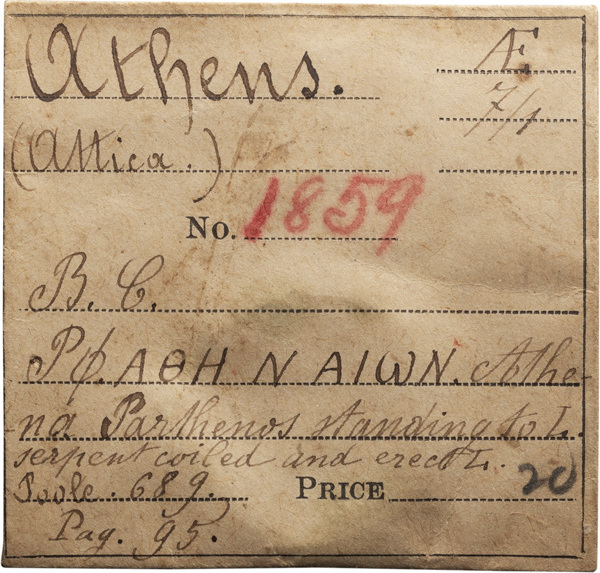 Athens.
Æ
7/1
(Attica.)
No. 1859
B. C.
Rφ. ΑΘΗ Ν ΑΙΩΝ. Athe-
na Parthenos standing to L.
serpent coiled and erect L.
Poole. 689. PRICE 20
Pag. 95.